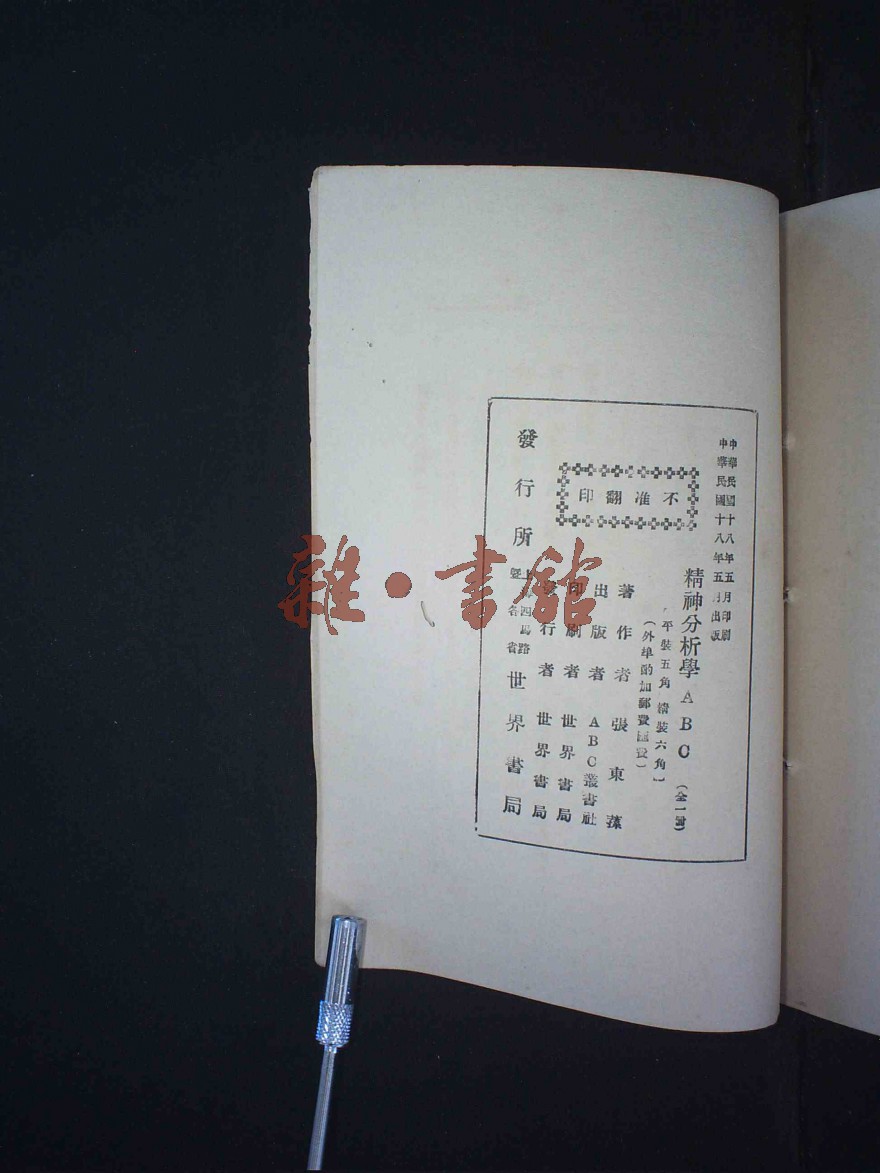 中華民國十八年五月印刷
中華民國十八年五月出版
精神分析學ABC(全一冊)
平裝五角 精裝六角
(外埠酌加郵費匯費)
不准翻印
著作者 張東蓀
出版者 ABC叢書社
印刷者 世界書局
發行者 世界書局
發行所 上海四馬路 暨各省 世界書局
雜·書館